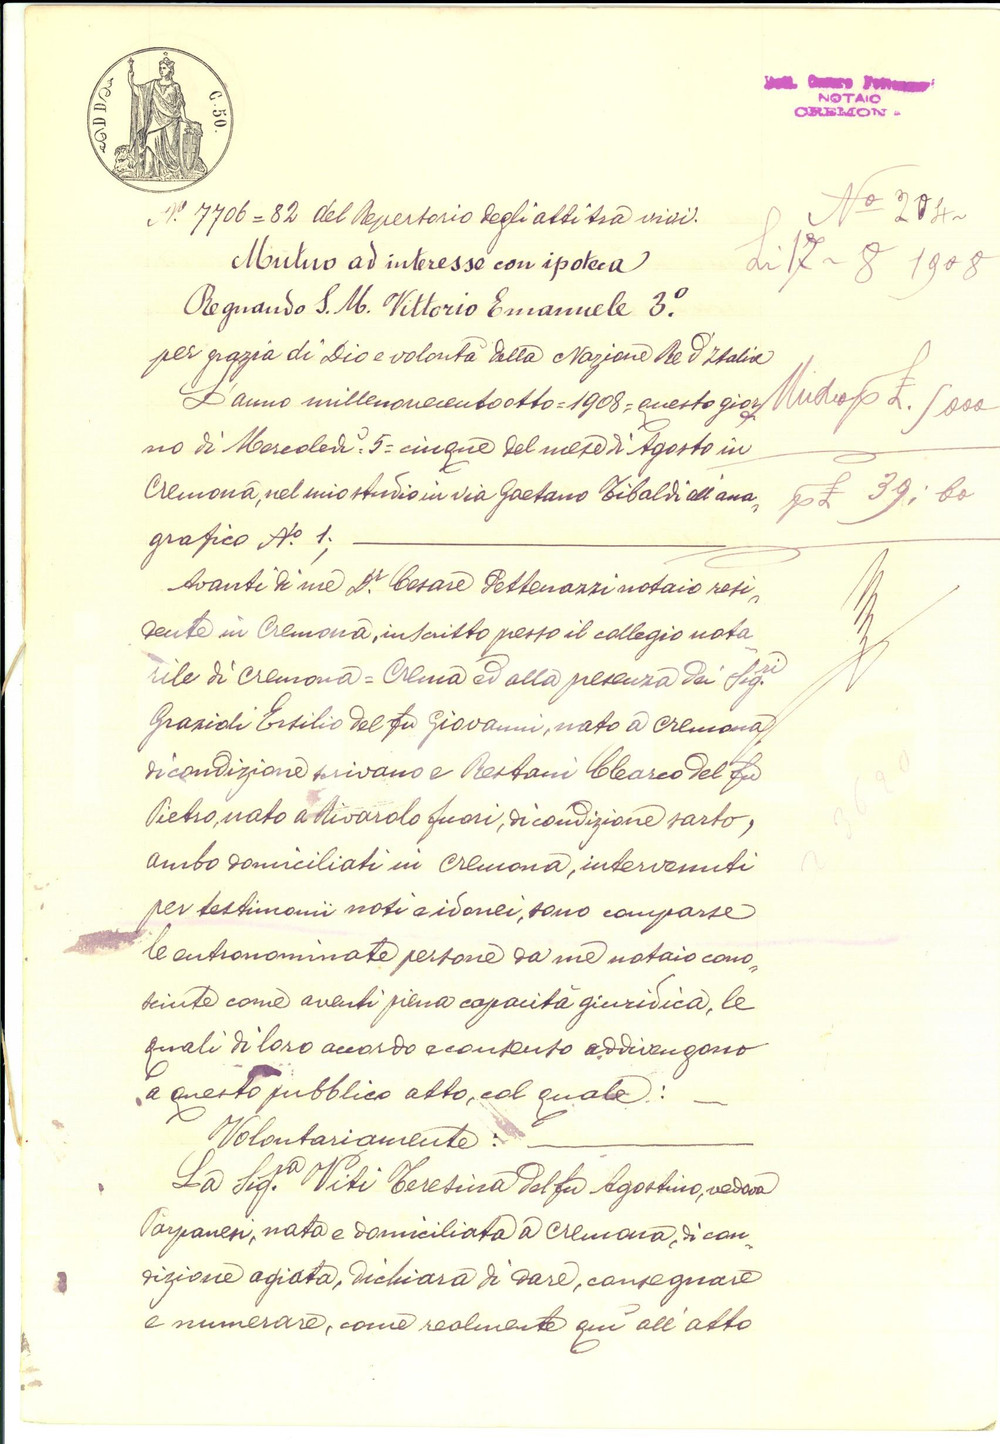 C. 50.
NOTAIO
CREMON
No 204
Li 17 - 8 1908
N.o 7706 = 82 del Repertorio degli atti tra vivi.
Mutuo ad interesse con ipoteca
Regnando S. M. Vittorio Emanuele 3.o
per grazia di Dio e volontà della Nazione Re d'Italia
L'anno millenovecentootto = 1908 = questo gior,
£. 5000
no di Mercoledì 5 = cinque del mese di Agosto in
Cremona, nel mio studio in via Gaetano Tibaldi all'ana,
p £ 39; 60
grafico N.o 1;
Avanti di me D.r Cesare Pettenazzi notaio resi,
dente in Cremona, inscritto presso il collegio nota
rile di Cremona = Crema ed alla presenza dei Sig.ri
Grazioli Ersilio del fu Giovanni, nato a Cremona,
di condizione scrivano e Restani Clearco del fu
Pietro, nato a Rivarolo fuori, di condizione sarto,
ambo domiciliati in Cremona, intervenuti
per testimonii noti e idonei, sono comparse
le entronominate persone da me notaio cono,
sciute come aventi piena capacità giuridica, le
quali di loro accordo e consenso addivengono
a questo pubblico atto, col quale :
Volontariamente :
La Sig.a Viti Teresina del fu Agostino, vedova
Porpanesi, nata e domiciliata a Cremona, di con,
dizione agiata, dichiara di dare, consegnare
e numerare, come realmente qui all'atto